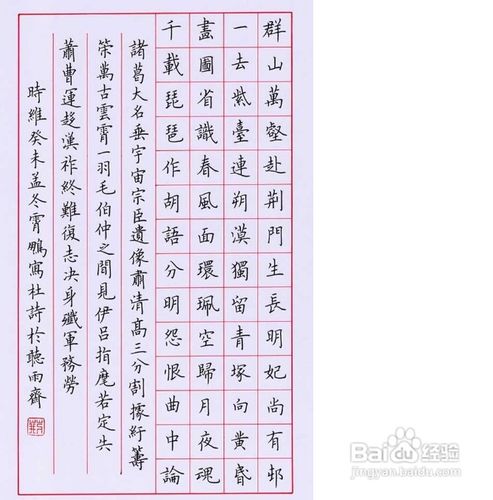 群山萬壑赴荆門生長明妃尚有邨
一去紫臺連朔漠獨留青塚向黃昏
畫圖省識春風面環珮空歸月夜魂
千載琵琶作胡語分明怨恨曲中論
諸葛大名垂宇宙宗臣遺像肅清髙三分割據紆籌
策萬古雲霄一羽毛伯仲之間見伊吕指麾若定失
蕭曹運移漢祚終難復志决身殲軍務勞
時維癸未孟冬霄鵬寫杜詩於聽雨齋
Baidu 经验
jingyan.baidu.com